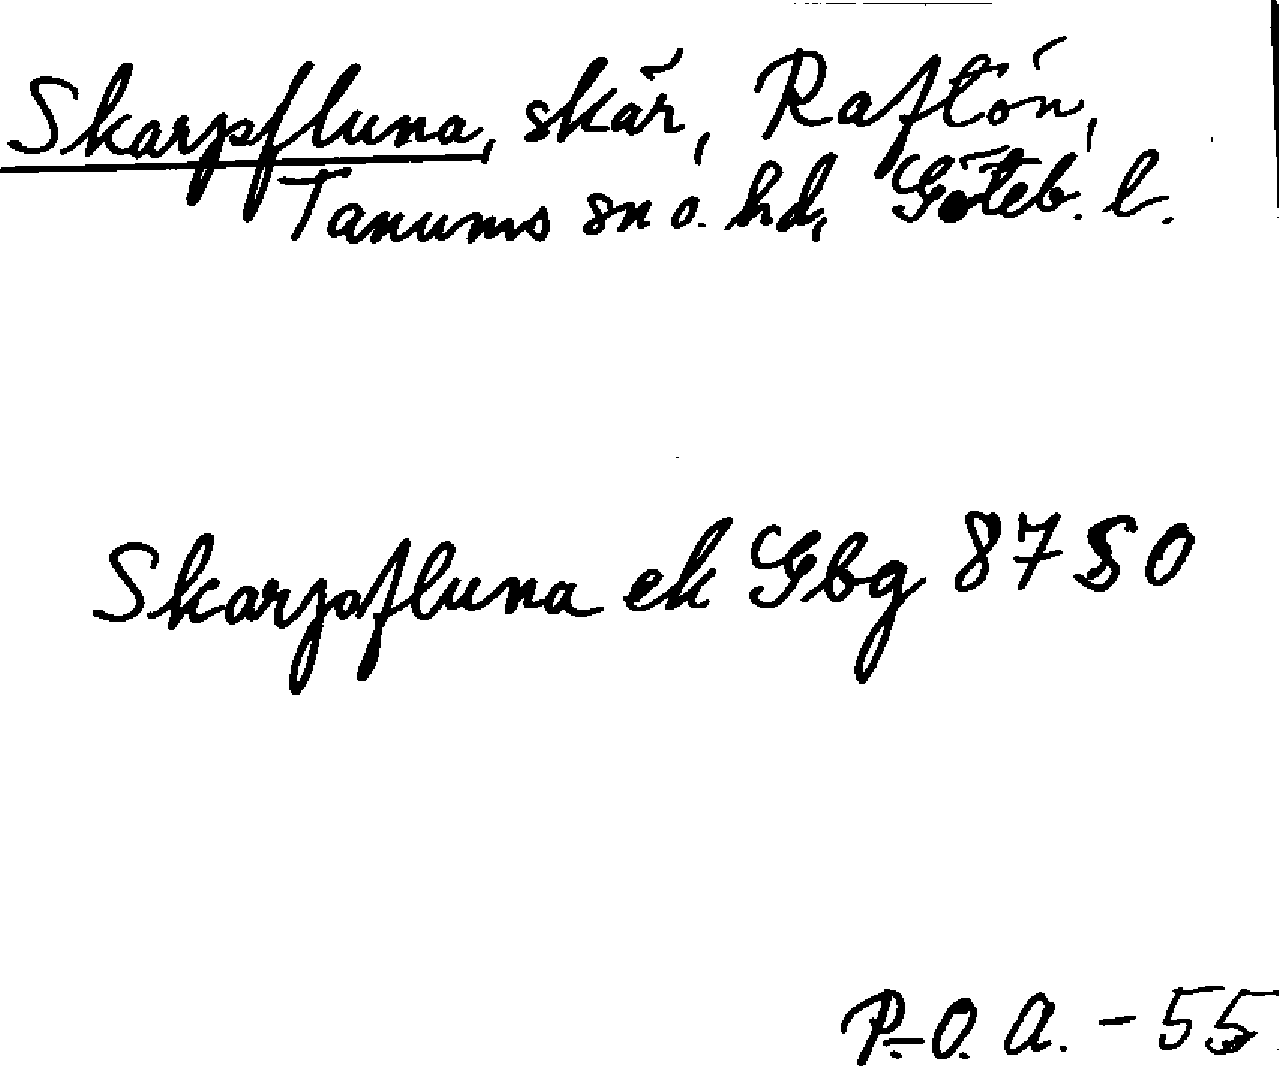 Skarpfluna, skär, Raftön,
Tanums sn o. hd, Göteb. l.
Skarpfluna ek Gbg 8750
P.-O. A. - 55